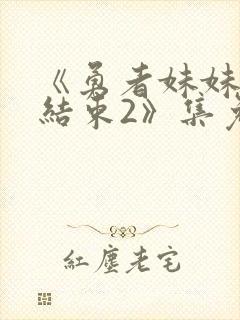 《勇者妹妹
結束2》集
紅塵老宅